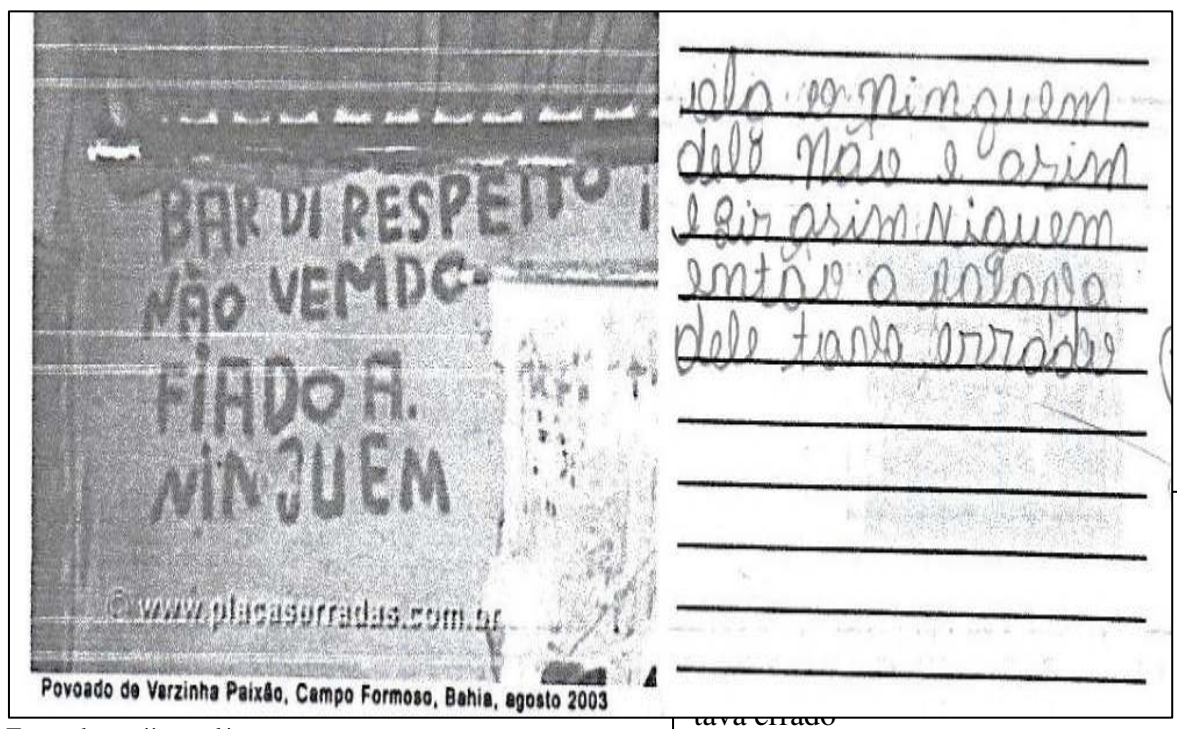 BAR DI RESPEITO
NÃO VEMDO
FIADO A.
NINJUEM
© www.placaserradas.com.br
Povoado de Varzinha Paixão, Campo Formoso, Bahia, agosto 2003
ninguem
dele Não e asim
e asim Niguem
então a
dele errado
tava errado